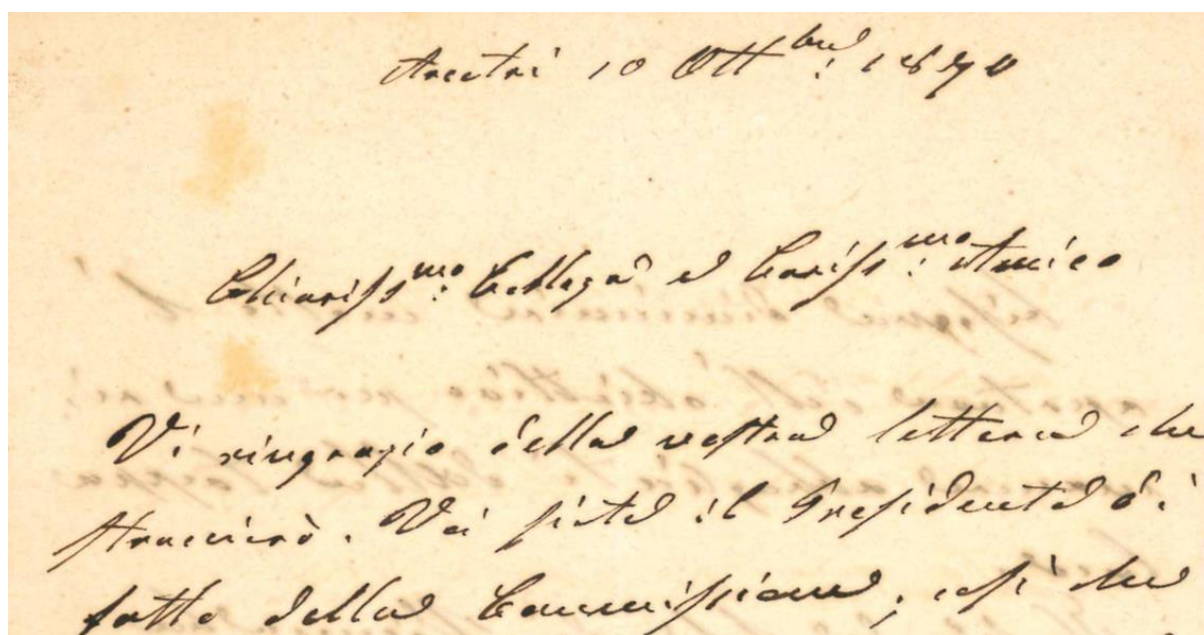 Arcetri 10 Ott.bre 1870
Chiariss.mo Collega e Cariss.mo Amico
Vi ringrazio della vostra lettera che
straccierò. Voi siete il Presidente di
fatto della Commissione, così che